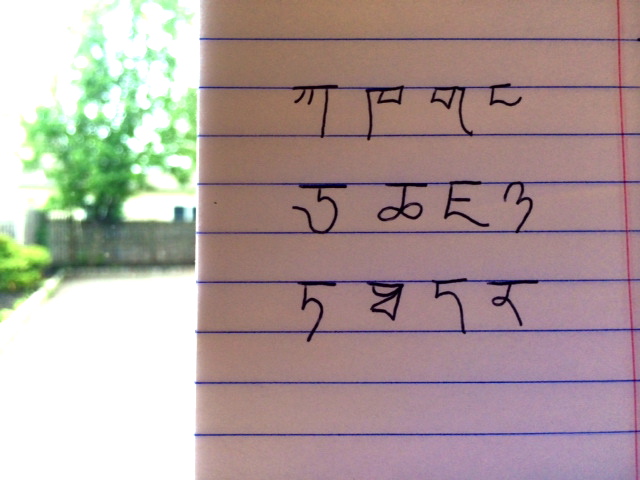 ཀ ཁ ག ང
ཅ ཆ ཇ ཉ
ཏ ཐ ད ན